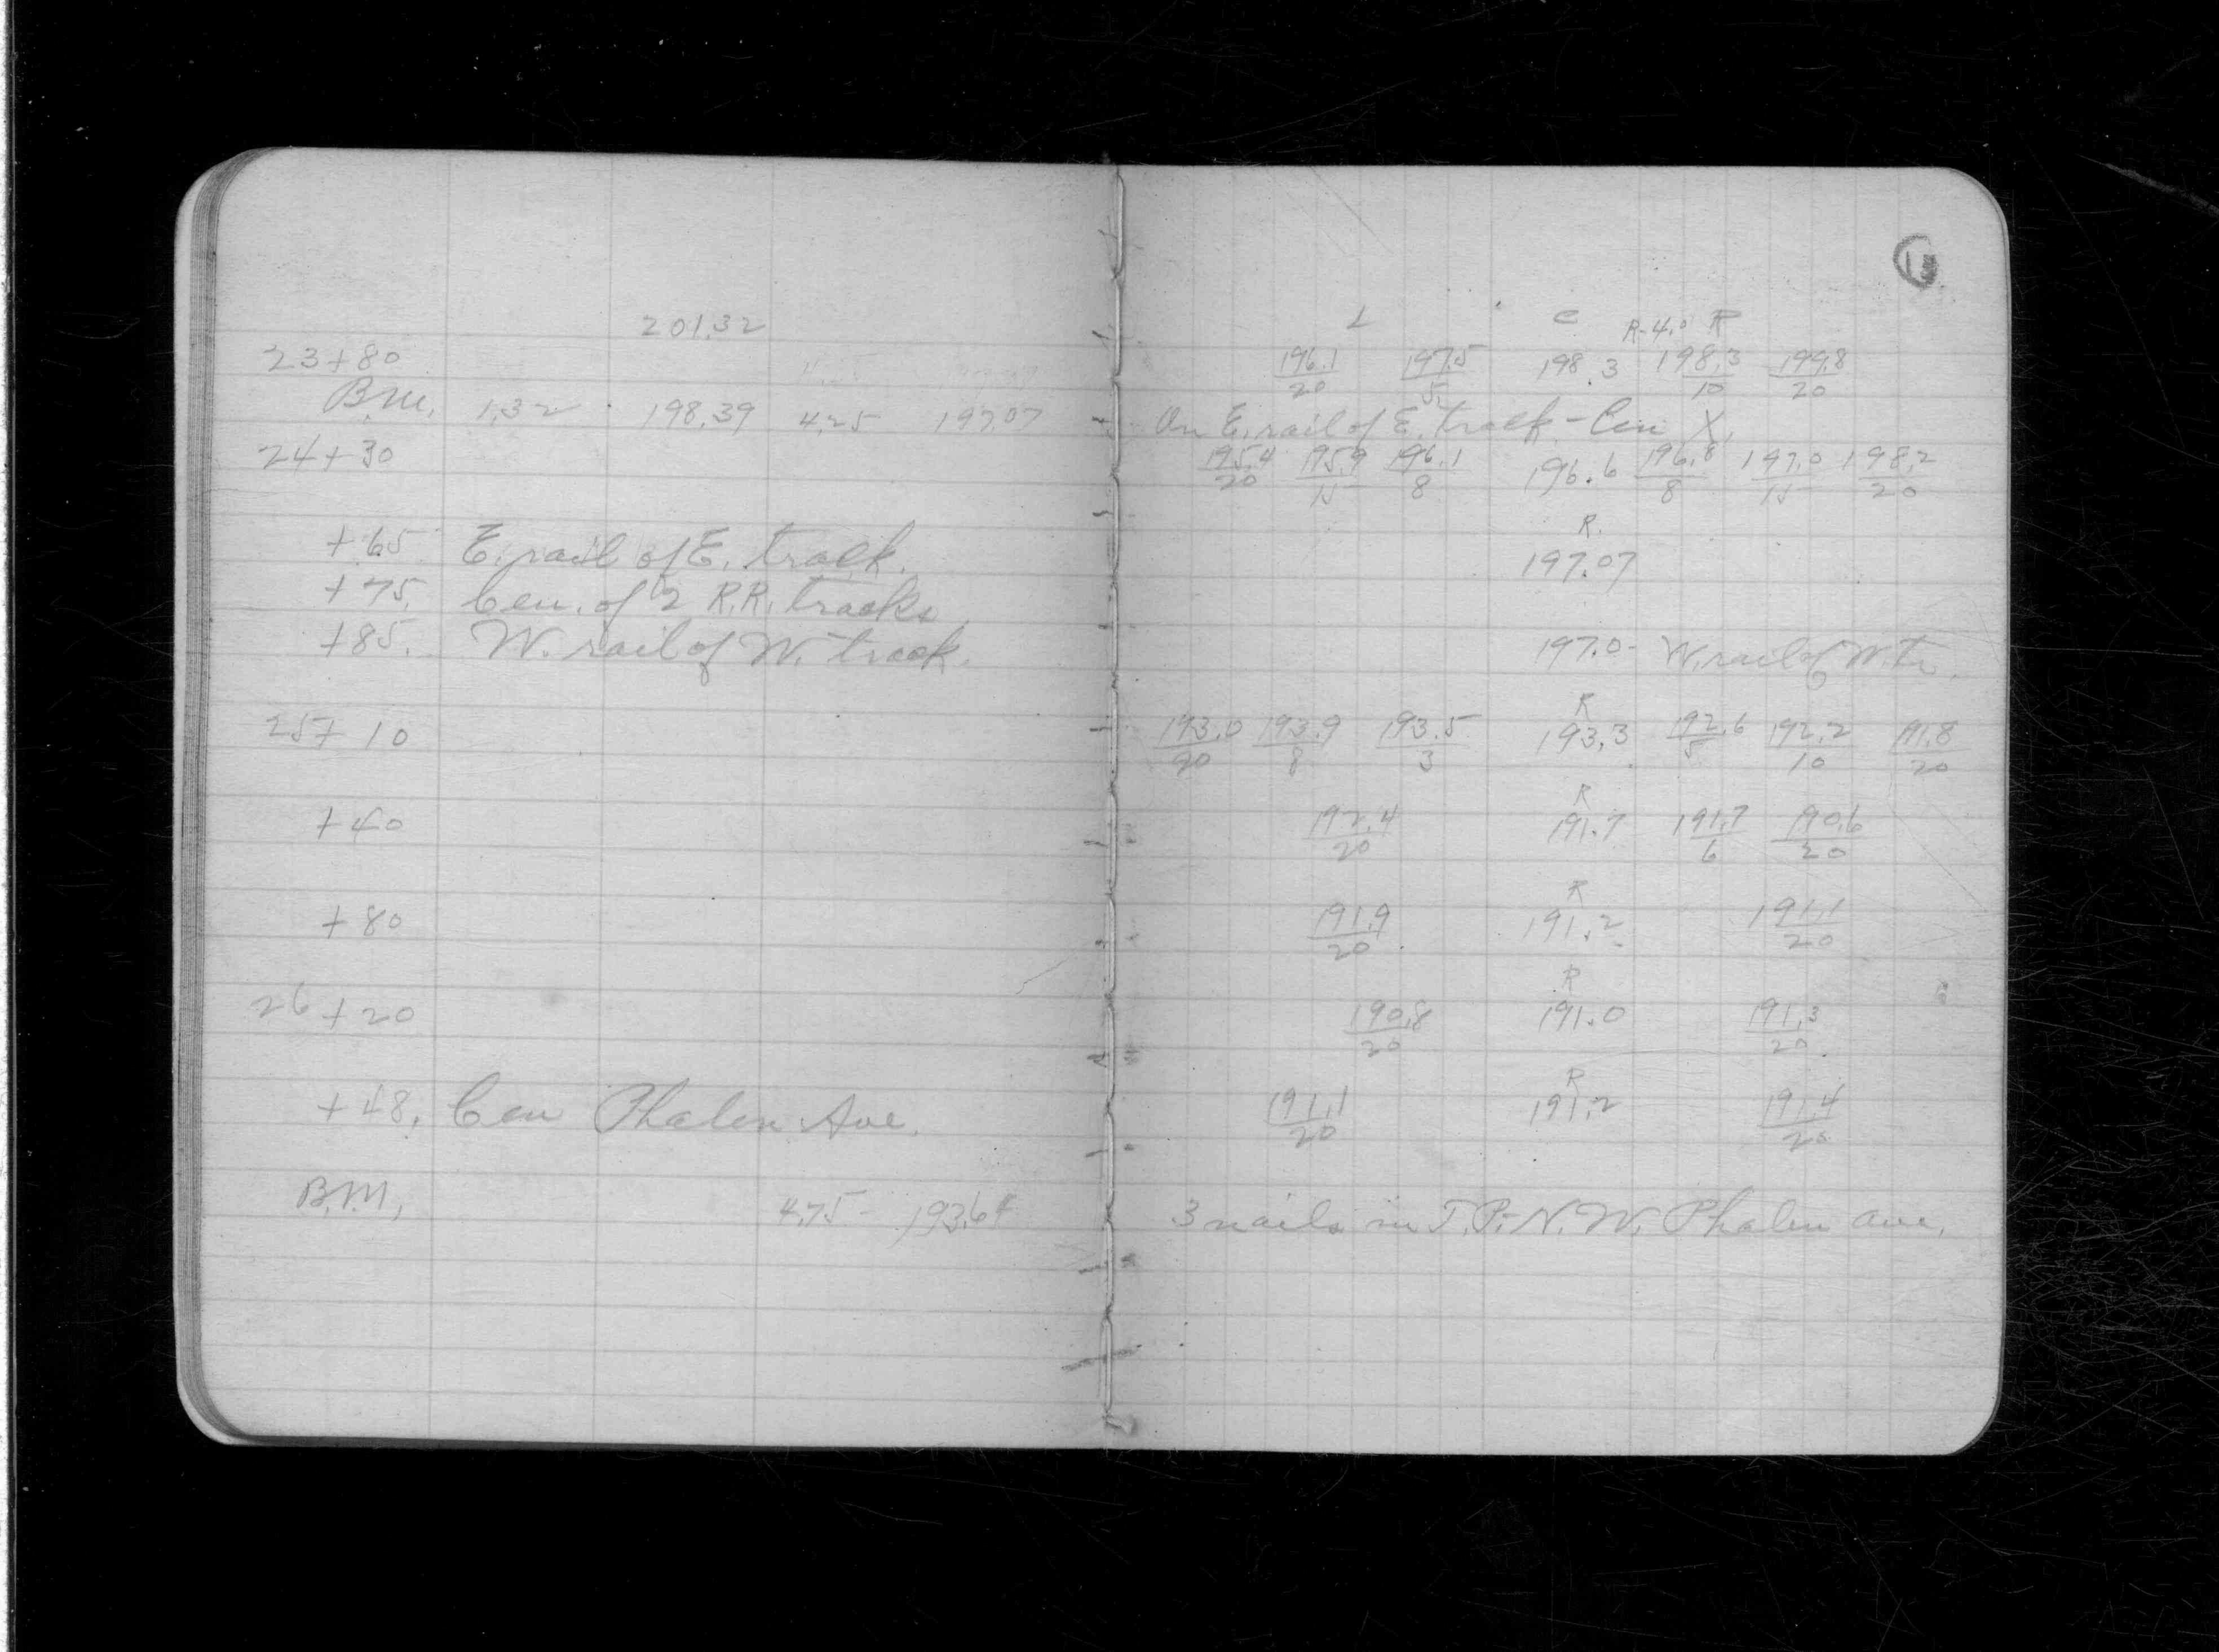 201.32
23+80
B.M. 1.32 198.39 4.25 197.07
24+30
+65 E. rail of E. track.
+75. Cen. of 2 R.R. tracks
+85. W. rail of W. track.
25+10
+40
+80
26+20
+48. Cen Phalen Ave.
B.M. 4.75 193.64
L C R-4.0 R
196.1/20 197.5/5 198.3 198.3/10 199.8/20
On E. rail of E. track - Cen X.
195.4/20 195.9/15 196.1/8 196.6 196.8/8 197.0/15 198.2/20
R.
197.07
197.0 - W. rail of W. tr.
R
193.0/20 193.9/8 193.5/3 193.3 192.6/5 192.2/10 191.8/20
R
192.4/20 191.7 191.7/6 190.6/20
R
191.9/20 191.2 191.1/20
R
190.8/20 191.0 191.3/20
R
191.1/20 191.2 191.4/20
3 nails in T.P. - N.W. Phalen Ave.